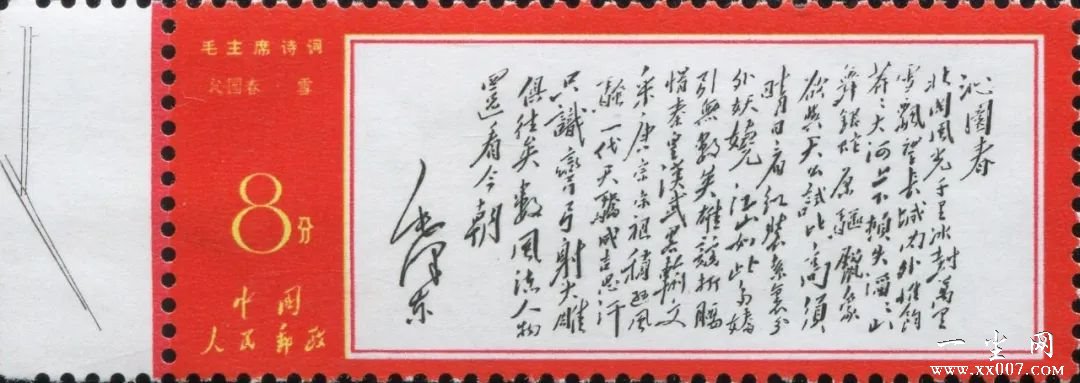 毛主席诗词
沁园春·雪
8分
中国
人民郵政
沁園春
北國風光千里冰封萬里
雪飄望長城內外惟餘
莽々大河上下頓失滔々山
舞銀蛇原驅臘象
欲與天公試比高須
晴日看紅裝素裹分
外妖嬈江山如此多嬌
引無數英雄競折腰
惜秦皇漢武畧輸文
采唐宗宋祖稍遜風
騷一代天驕成吉思汗
只識彎弓射大雕
俱往矣數風流人物
還看今朝
毛澤东
一尘网
www.xx007.com